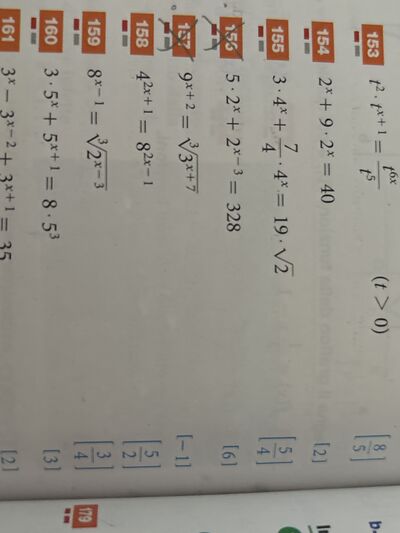 153 t² · t^(x+1) = t^(6x)/t⁵ (t > 0) [8/5]
154 2^x + 9 · 2^x = 40 [2]
155 3 · 4^x + 7/4 · 4^x = 19 · √2 [5/4]
156 5 · 2^x + 2^(x−3) = 328 [6]
157 9^(x+2) = ∛(3^(x+7)) [−1]
158 4^(2x+1) = 8^(2x−1) [5/2]
159 8^(x−1) = ∛(2^(x−3)) [3/4]
160 3 · 5^x + 5^(x+1) = 8 · 5³ [3]
161 3^x − 3^(x−2) + 3^(x+1) = 35 [2]
179